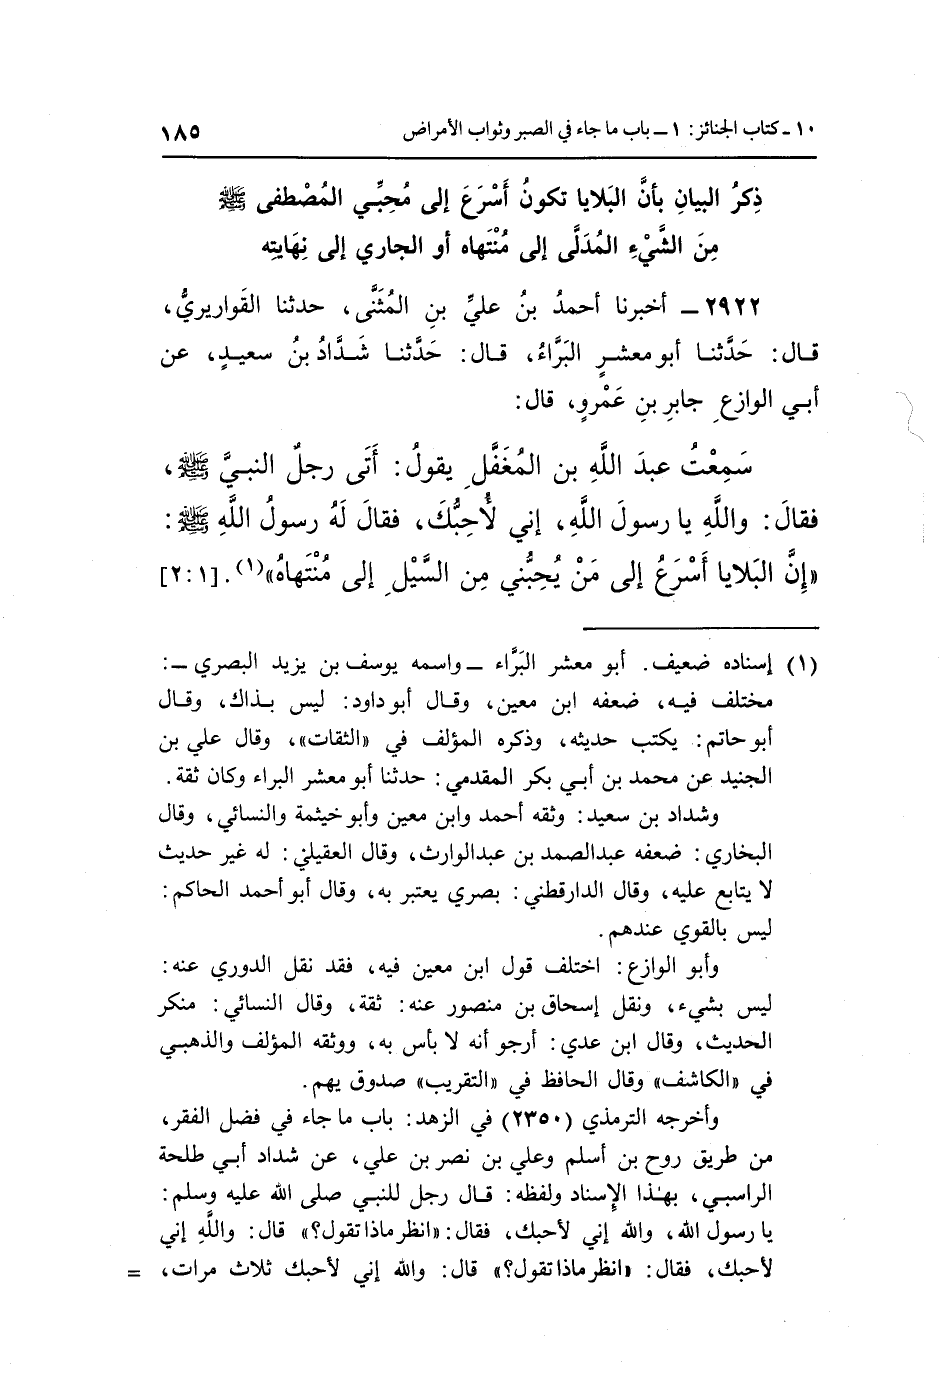 ١٠ـ كتاب الجنائز: ١ ـ باب ما جاء في الصبر وثواب الأمراض ١٨٥
ذِكرُ البيانِ بأنَّ البَلايا تكونُ أَسْرَعَ إلى مُحِبِّي المُصْطفى ﷺ
مِنَ الشَّيْءِ المُدَلَّى إلى مُنْتَهاه أو الجاري إلى نِهَايتِه
٢٩٢٢ ـ أخبرنا أحمدُ بنُ عليِّ بنِ المُثَنَّى، حدثنا القَواريريُّ،
قال: حَدَّثنا أبو معشرٍ البَرَّاءُ، قال: حَدَّثنا شَدَّادُ بنُ سعيدٍ، عن
أبي الوازعِ جابرِ بنِ عَمْرٍو، قال:
سَمِعْتُ عبدَ اللَّهِ بن المُغَفَّلِ يقولُ: أَتَى رجلٌ النبيَّ ﷺ،
فقالَ: واللَّهِ يا رسولَ اللَّهِ، إني لُأحِبُّكَ، فقالَ لَهُ رسولُ اللَّهِ ﷺ:
«إِنَّ البَلايا أَسْرَعُ إلى مَنْ يُحِبُّني مِن السَّيْلِ إلى مُنْتَهاهُ»(١). [٢:١]
(١) إسناده ضعيف. أبو معشر البَرَّاء ـ واسمه يوسف بن يزيد البصري ـ:
مختلف فيه، ضعفه ابن معين، وقال أبو داود: ليس بذاك، وقال
أبو حاتم: يكتب حديثه، وذكره المؤلف في «الثقات»، وقال علي بن
الجنيد عن محمد بن أبي بكر المقدمي: حدثنا أبو معشر البراء وكان ثقة.
وشداد بن سعيد: وثقه أحمد وابن معين وأبو خيثمة والنسائي، وقال
البخاري: ضعفه عبدالصمد بن عبدالوارث، وقال العقيلي: له غير حديث
لا يتابع عليه، وقال الدارقطني: بصري يعتبر به، وقال أبو أحمد الحاكم:
ليس بالقوي عندهم.
وأبو الوازع: اختلف قول ابن معين فيه، فقد نقل الدوري عنه:
ليس بشيء، ونقل إسحاق بن منصور عنه: ثقة، وقال النسائي: منكر
الحديث، وقال ابن عدي: أرجو أنه لا بأس به، ووثقه المؤلف والذهبي
في «الكاشف» وقال الحافظ في «التقريب» صدوق يهم.
وأخرجه الترمذي (٢٣٥٠) في الزهد: باب ما جاء في فضل الفقر،
من طريق روح بن أسلم وعلي بن نصر بن علي، عن شداد أبي طلحة
الراسبي، بهذا الإسناد ولفظه: قال رجل للنبي صلى الله عليه وسلم:
يا رسول الله، والله إني لأحبك، فقال: «انظر ماذا تقول؟» قال: واللَّهِ إني
لأحبك، فقال: «انظر ماذا تقول؟» قال: والله إني لأحبك ثلاث مرات، =